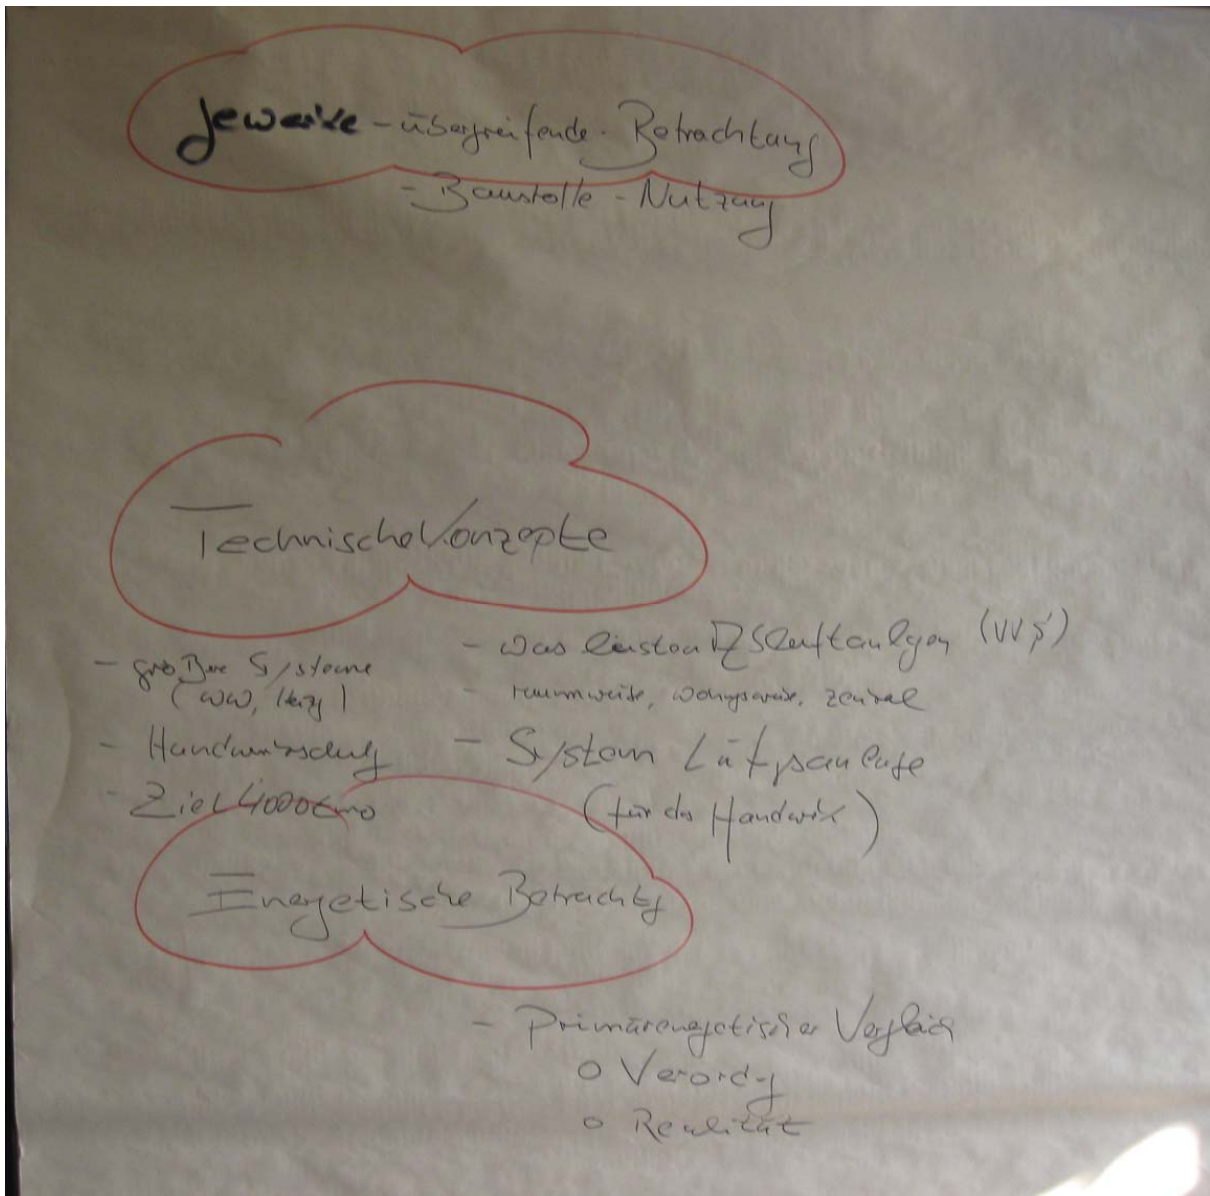 Gewerke-übergreifende Betrachtung
- Baustelle - Nutzung
Technische Konzepte
- größere Systeme
(WW, Heizg)
- Handwerkschulg
- Ziel 4000€
- Was leisten Abluftanlagen
- raumweise, wohngsweise, zentral
- System Lüftgsanlage
(für das Handwerk)
Energetische Betrachtg
- Primärenergetischer Vergleich
o Verordg
o Realität